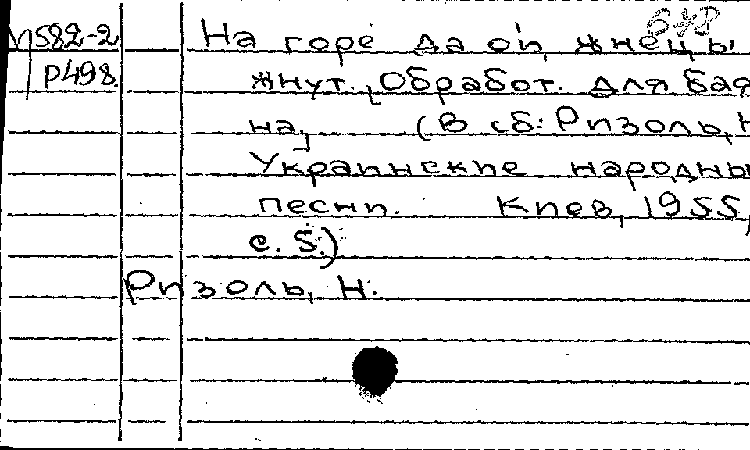 М582-2 На горе да ой, жнецы
Р498 жнут. [Обработ. для бая
на] (В сб: Ризоль, Н
Украинские народны
песни. Киев, 1955,
с. 5.)
Ризоль, Н.